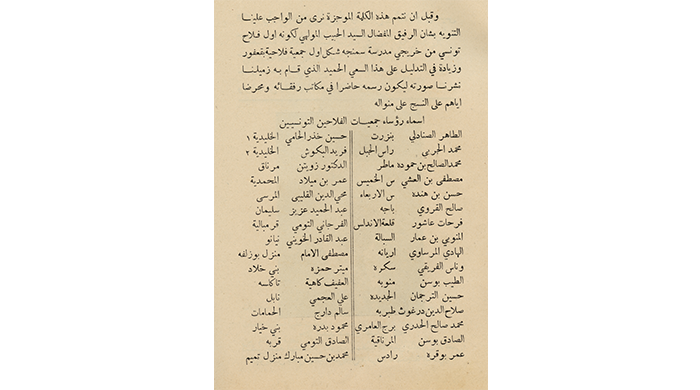 وقبل ان نتمم هذه الكلمة الموجزة نرى من الواجب علينا
التنويه بشان الرفيق المفضال السيد الحبيب المولهي لكونه اول فلاح
تونسي من خريجي مدرسة سمنجه شكل اول جمعية فلاحية بقعفور
وزيادة في التدليل على هذا السعي الحميد الذي قام به زميلنا
نشرنا صورته ليكون رسمه حاضرا في مكاتب رفقائه ومحرضا
اياهم على النسج على منواله
اسماء رؤساء جمعيات الفلاحين التونسيين
الطاهر الصنادلي بنزرت
محمد الجربي راس الجبل
محمد الصالح بن حموده ماطر
مصطفى بن العشي س الخميس
حسن بن هنده س الاربعاء
صالح القروي باجه
فرحات عاشور قلعة الاندلس
المنوبي بن عمار السبالة
الهادي المرساوي اريانه
وناس الفريقي سكره
الطيب بوسن منوبه
حسين الترجمان الجديده
صلاح الدين درغوث طبربه
محمد صالح الحدري برج العامري
الصادق بوسن المرناقية
عمر بوقره رادس
حسين خذر الحامي الخليدية ١
فريد البكوش الخليدية ٢
الدكتور زويتن مرناق
عمر بن ميلاد المحمدية
محي الدين القليبي المرسى
عبد الحميد عزيز سليمان
الفرجاني التومي قرمبالية
عبد القادر الخويني نيانو
مصطفى الامام منزل بوزلفه
ميتر حمزه بني خلاد
العفيف كاهية تاكلسه
علي العجمي نابل
سالم دارج الحمامات
محمود بدره بني خيار
الصادق التومي قربه
محمد بن حسين مبارك منزل تميم